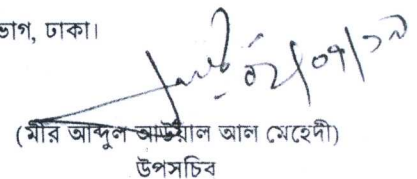 ভাগ, ঢাকা।
০২/০৭/১৯
(মীর আব্দুল আউয়াল আল মেহেদী)
উপসচিব